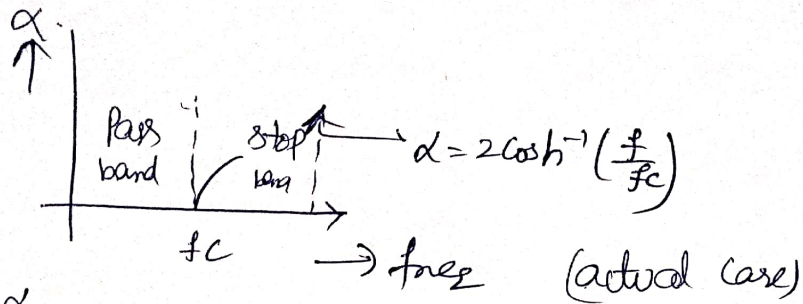 α
Pass band
stop band
α = 2 Cosh⁻¹ (f/fc)
fc
→ freq (actual case)